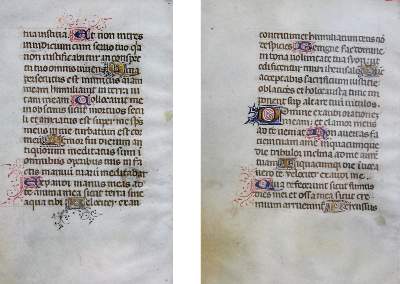 tua iusticia. Et non intres
in iudicium cum servo tuo q̄a
non iustificabitur in conspec
tu tuo omnis vivens. Quia
persecutus est inimicus aiam
meam humiliavit in terra vi
tam meam. Collocavit me
in obscuris sicut mortuos secu
li et anxiatus est super me sps
meus in me turbatum est cor
meum. Memor fui dierum an
tiquorum meditatus sum i
omnibus operibus tuis in fa
ctis manuum tuarum meditabar
Expandi manus meas ad
te anima mea sicut terra sine
aqua tibi. Velociter exau
contritum et humiliatum deus no
despicies. Benigne fac domine
in bona voluntate tua syon ut
edificentur muri iherusalem. Tunc
acceptabis sacrificium iusticie
oblaciones et holocausta tunc im
ponent sup altare tuum vitulos.
Domine exaudi orationem
meam: et clamor meus
ad te veniat. Non avertas fa
ciem tuam a me inquacumque
die tribulor inclina ad me aure
tuam. Inquacumque die invoca
vero te velociter exaudi me.
Quia defecerunt sicut fumus
dies mei et ossa mea sicut cre
mium aruerunt. Percussus